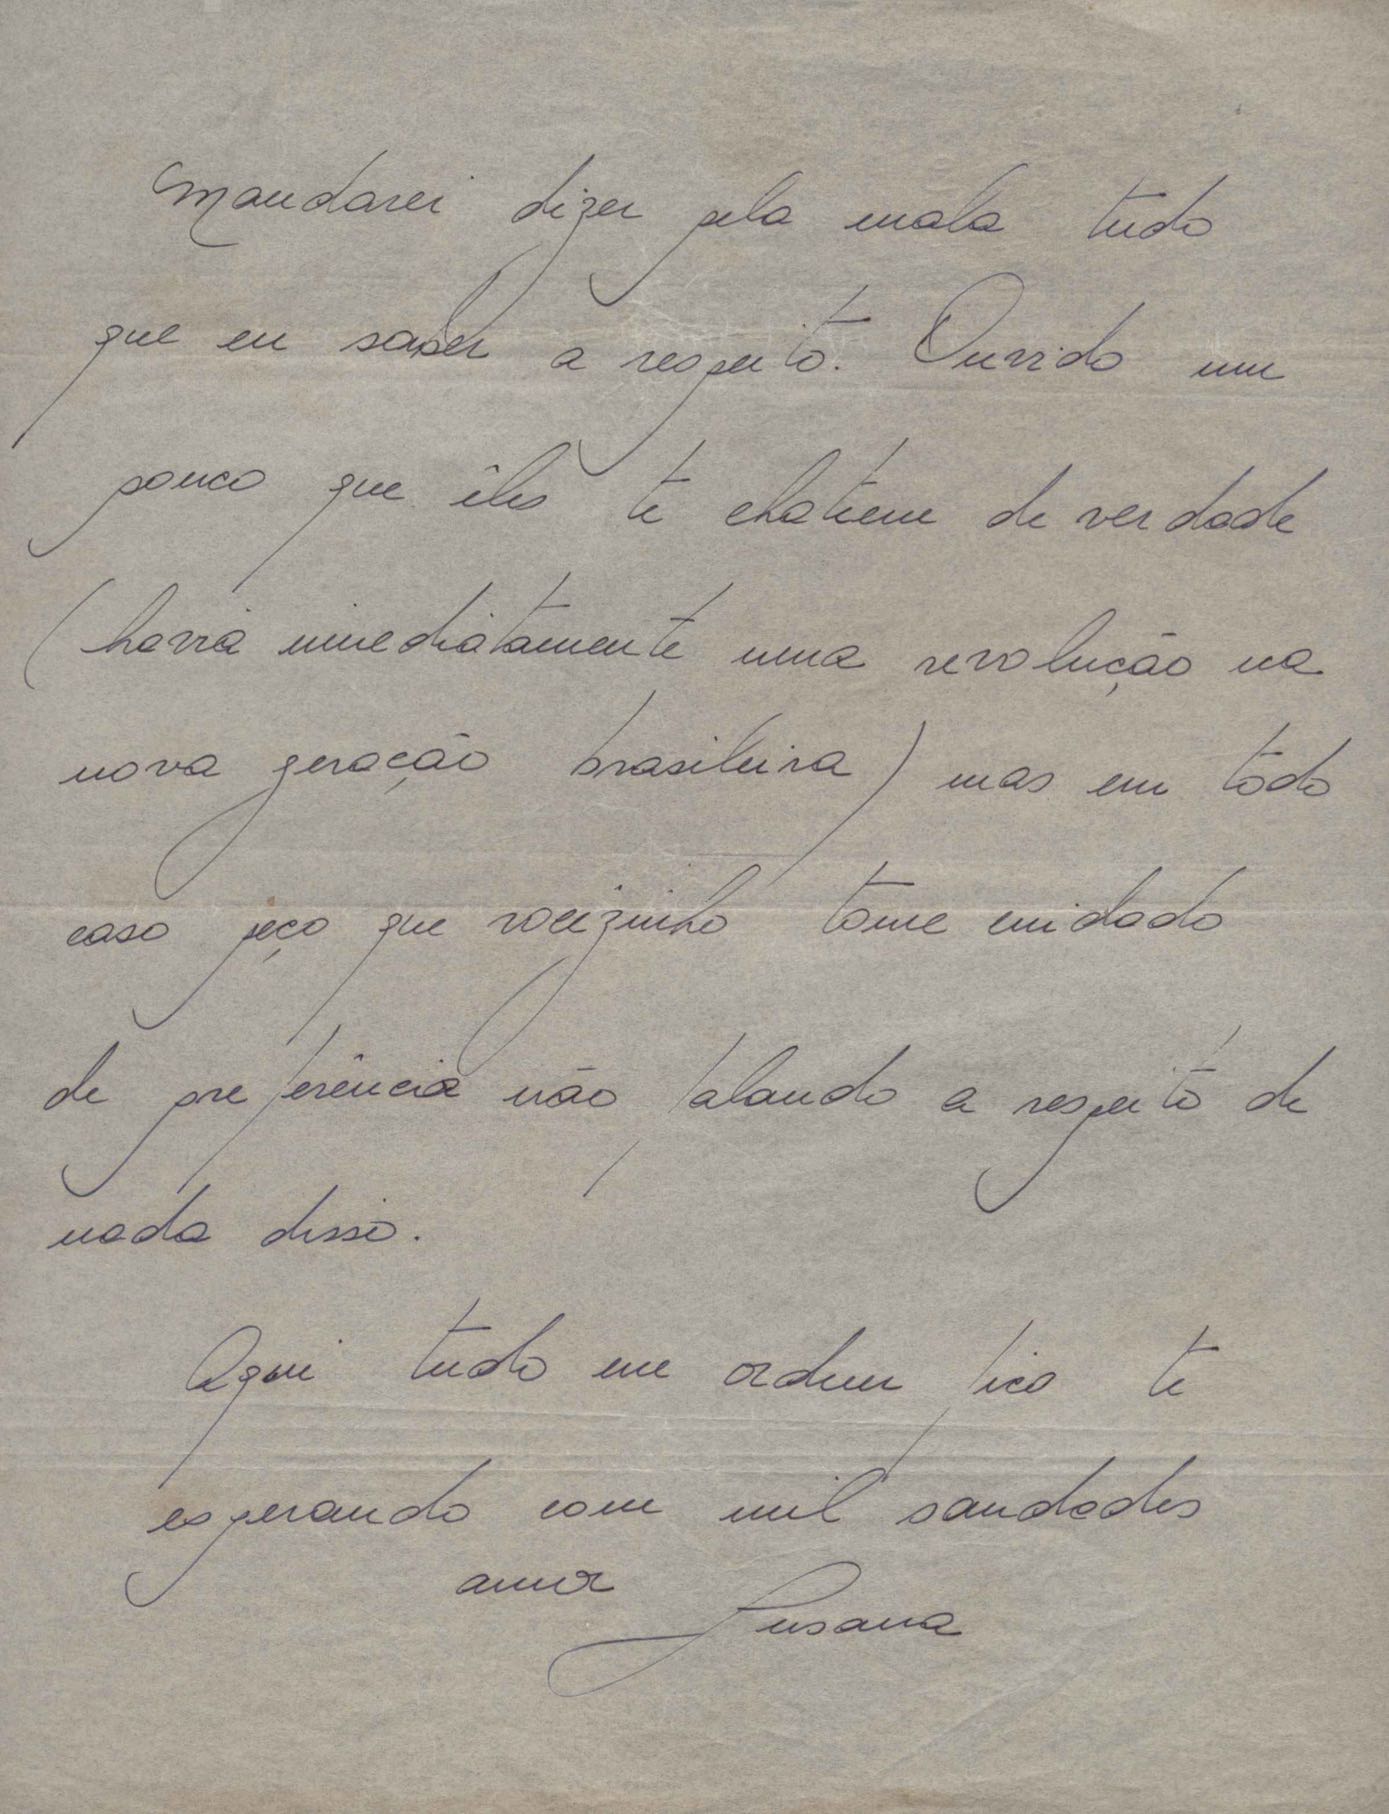 Mandarei dizer pela mala tudo
que eu saber a respeito. Duvido um
pouco que êles te chateem de verdade
(havia imediatamente uma revolução na
nova geração brasileira) mas em todo
caso peço que vocezinho tome cuidado
de preferência não falando a respeito de
nada disso.
Aqui tudo em ordem fico te
esperando com mil saudades
amor
Susana